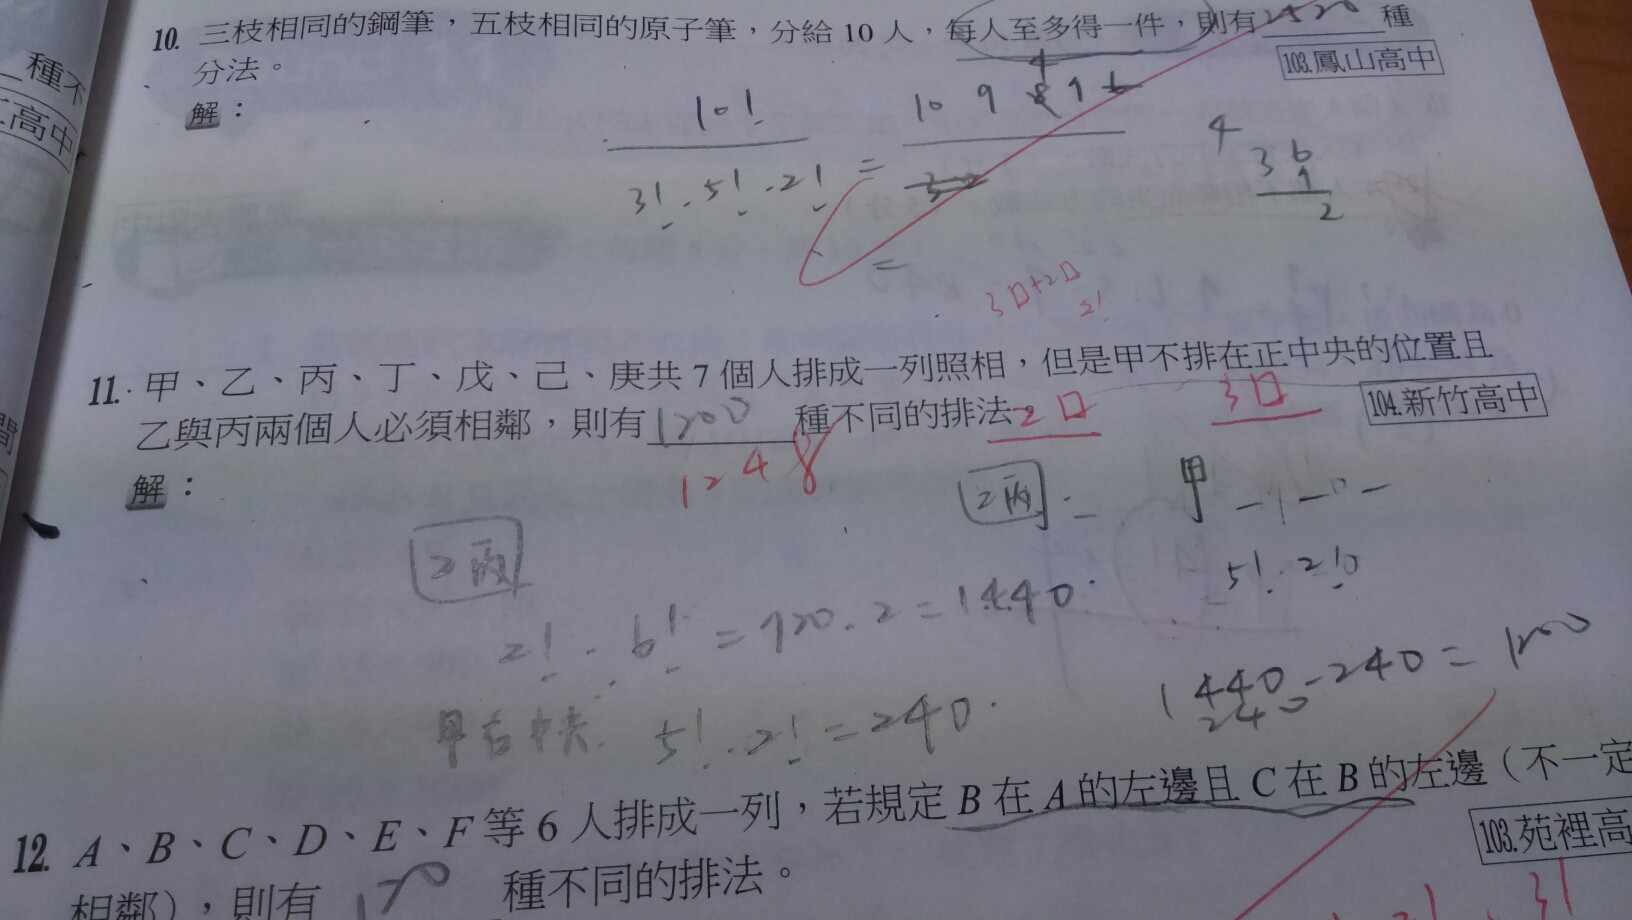 種不
高中
10. 三枝相同的鋼筆，五枝相同的原子筆，分給 10 人，每人至多得一件，則有2520種
分法。
103.鳳山高中
解：
10!
3!·5!·2!
=
10 9 8 7 6
3 2
4
4
36
7
2
=
3口+2口
2!
11. 甲、乙、丙、丁、戊、己、庚共 7 個人排成一列照相，但是甲不排在正中央的位置且
乙與丙兩個人必須相鄰，則有1200種不同的排法
104.新竹高中
1248
2口
3口
解：
乙丙
乙丙
甲
5!·2!
2!·6!=720·2=1440
甲在中央 5!·2!=240
1440-240=1200
240
12. A、B、C、D、E、F 等 6 人排成一列，若規定 B 在 A 的左邊且 C 在 B 的左邊（不一定
103.苑裡高
相鄰），則有 120 種不同的排法。
3!